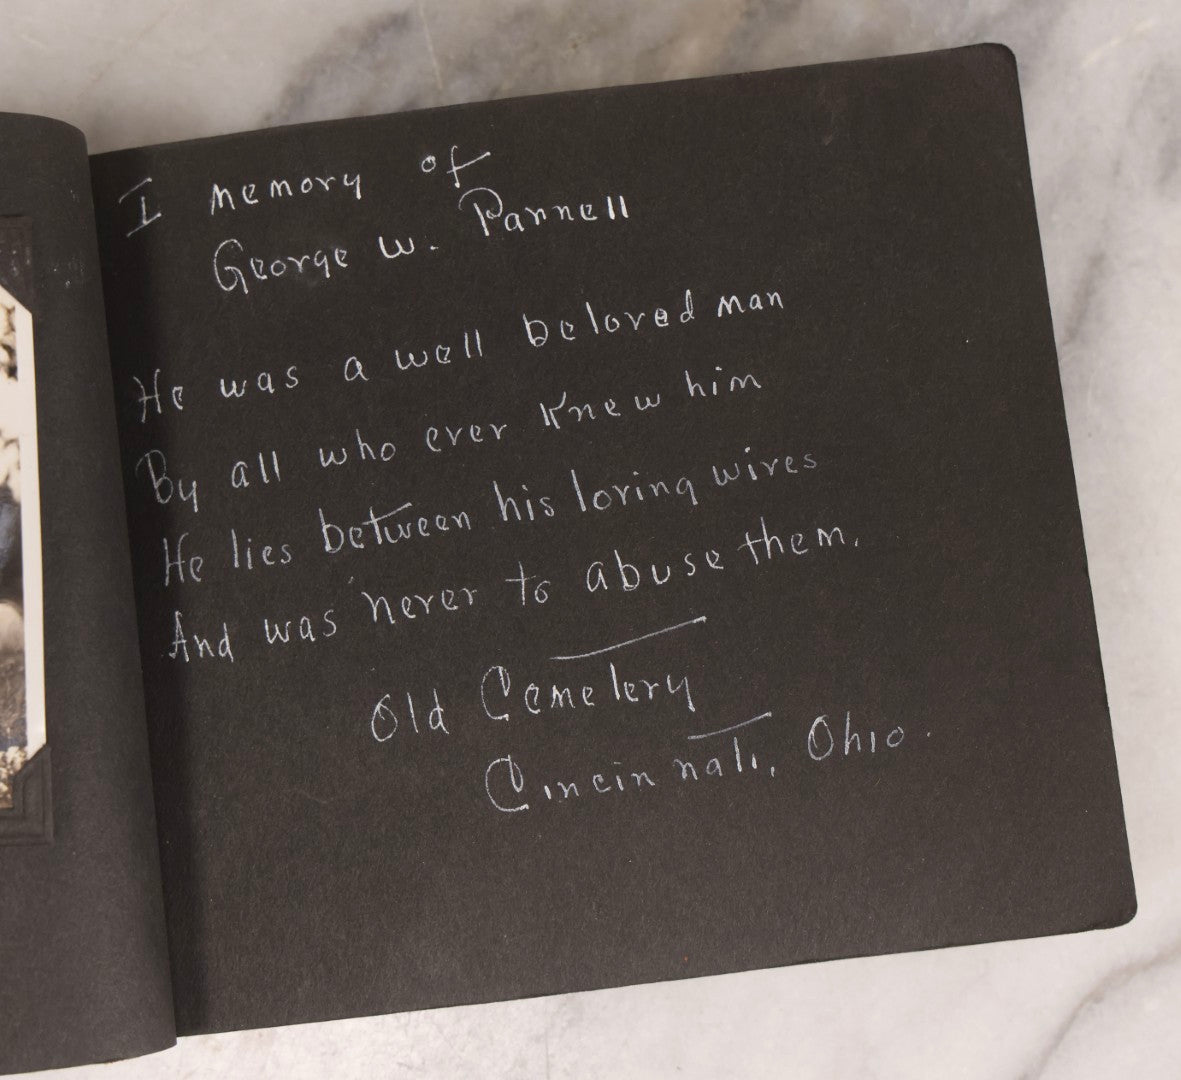 I memory of
George W. Pannell
He was a well beloved man
By all who ever knew him
He lies between his loving wives
And was never to abuse them.
Old Cemetery
Cincinnati, Ohio.